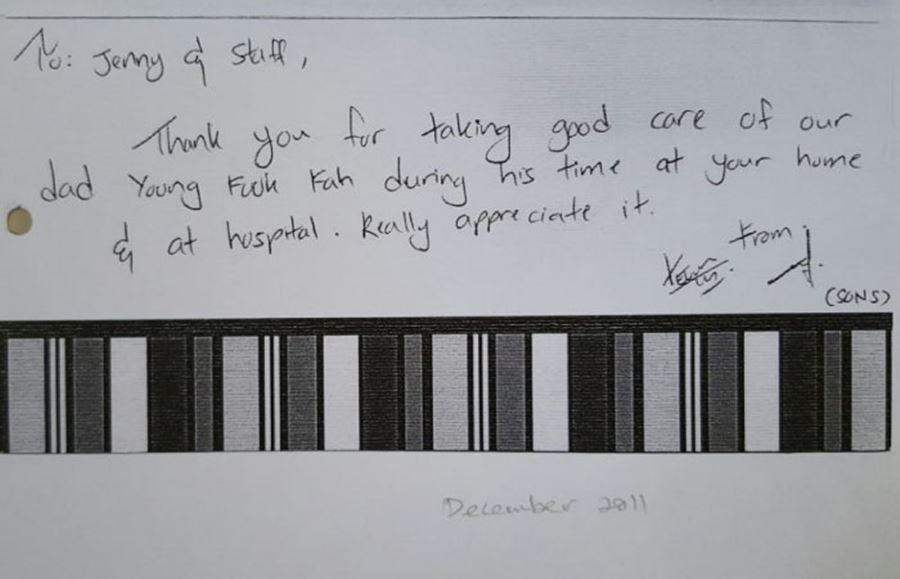 To: Jenny & Staff,
Thank you for taking good care of our
dad Young Fook Fah during his time at your home
& at hospital. Really appreciate it.
From
(SONS)
December 2011